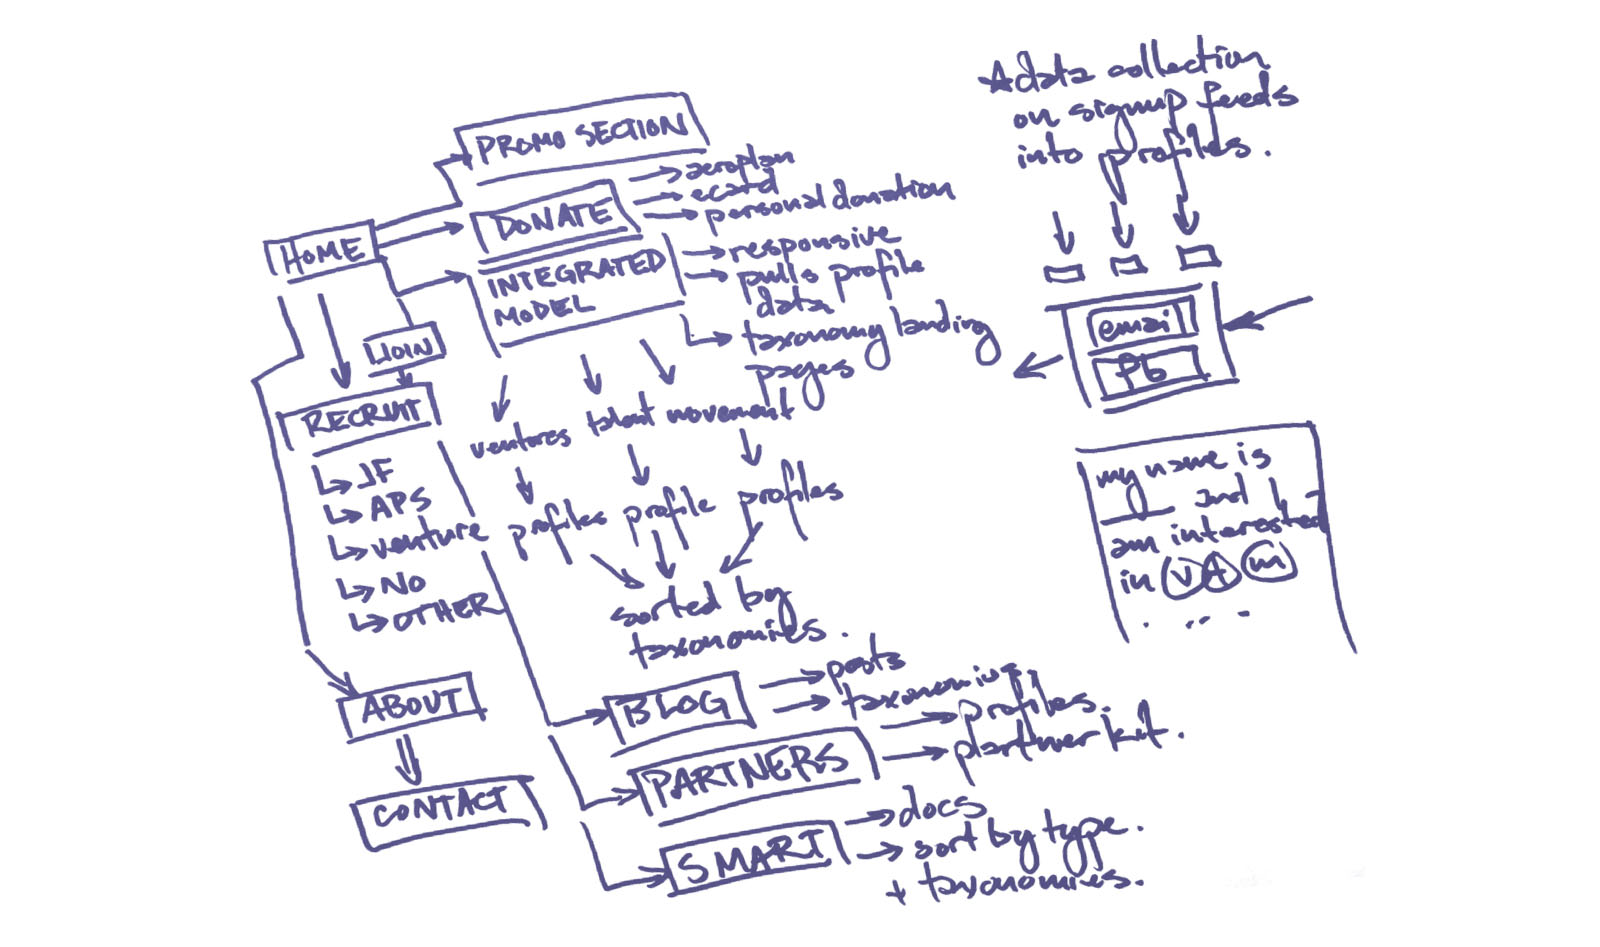 PROMO SECTION
HOME
DONATE
→ aeroplan
→ ecard
→ personal donation
INTEGRATED
MODEL
→ responsive
→ pulls profile
data
→ taxonomy landing
pages
JOIN
RECRUIT
↳ JF
↳ APS
↳ venture
↳ NO
↳ OTHER
ventures talent movement
profiles profile profiles
sorted by
taxonomies.
ABOUT
CONTACT
BLOG
→ posts
→ taxonomies
PARTNERS
→ profiles.
→ partner kit.
SMART
→ docs
→ sort by type.
+ taxonomies.
* data collection
on signup feeds
into profiles.
email
my name is
___ and I
am interested
in V A M
. ... -